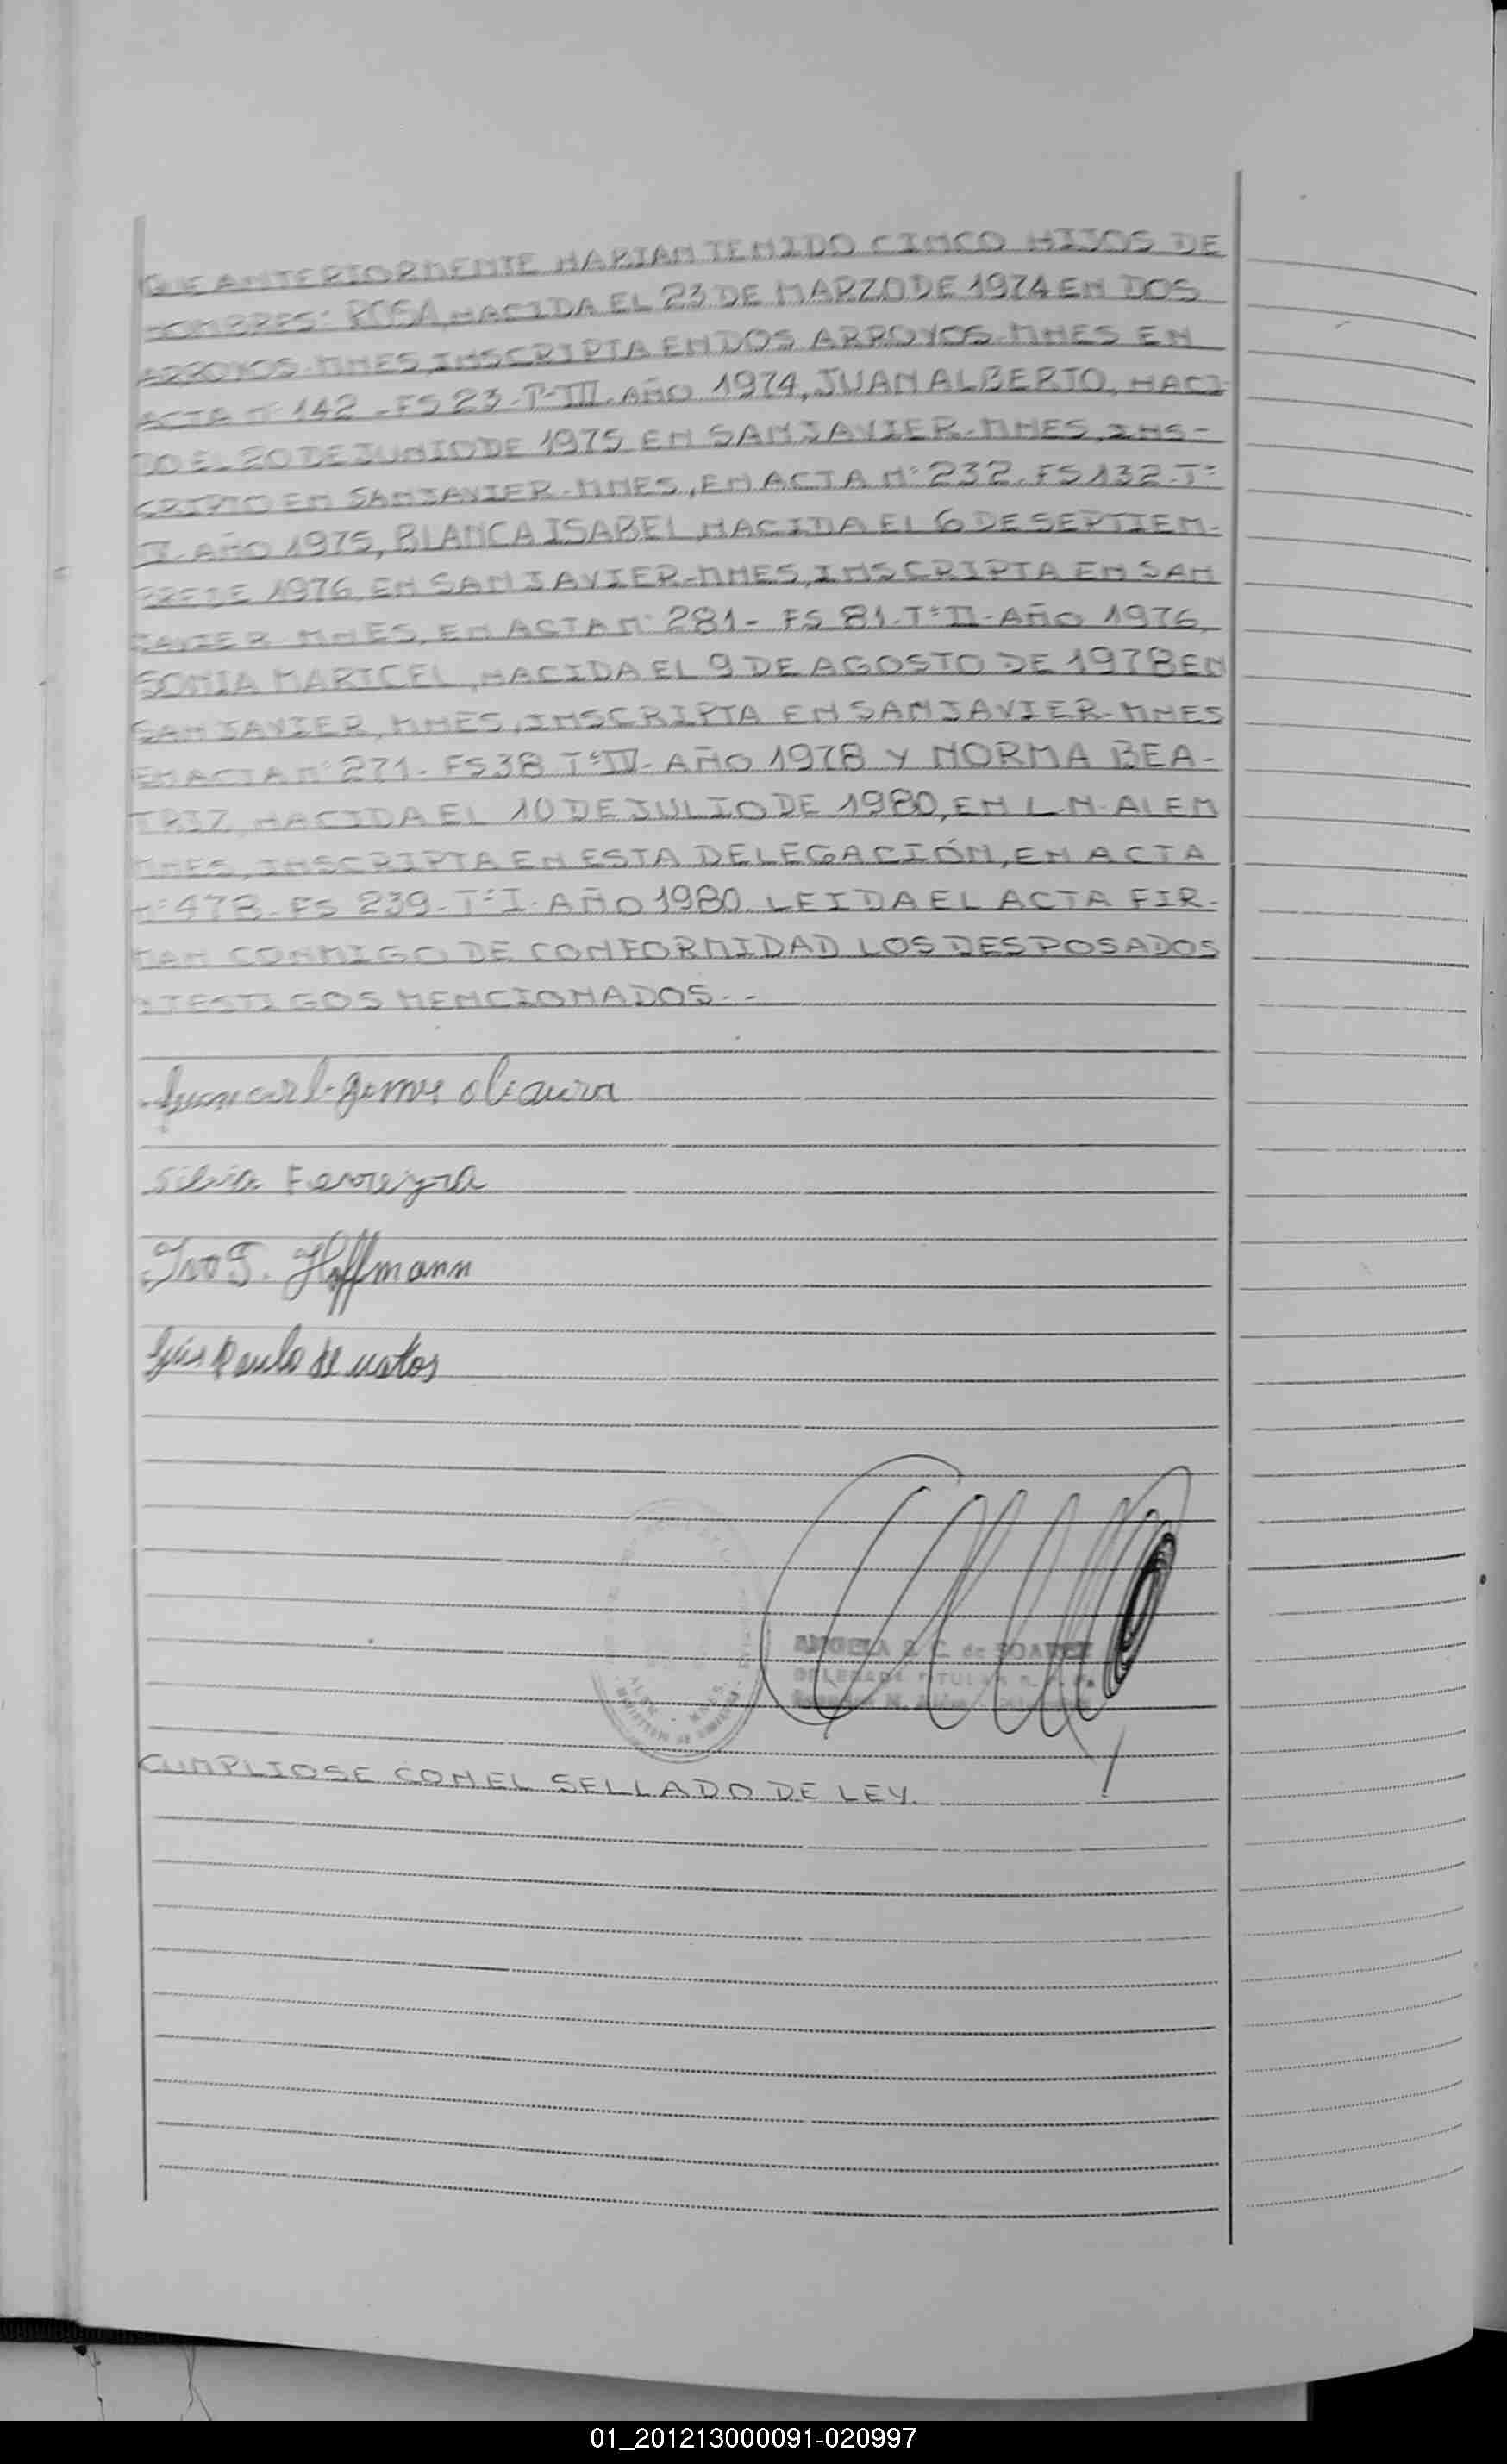 QUE ANTERIORMENTE HABIAN TENIDO CINCO HIJOS DE
NOMBRES: ROSA, NACIDA EL 23 DE MARZO DE 1974 EN DOS
ARROYOS-MNES, INSCRIPTA EN DOS ARROYOS-MNES EN
ACTA Nº 142-FS 23-Tº III-AÑO 1974, JUAN ALBERTO, NACI-
DO EL 20 DE JUNIO DE 1975 EN SAN JAVIER-MNES, INS-
CRIPTO EN SAN JAVIER-MNES, EN ACTA Nº 232-FS 132-Tº
II-AÑO 1975, BLANCA ISABEL, NACIDA EL 6 DE SEPTIEM-
BRE DE 1976 EN SAN JAVIER-MNES, INSCRIPTA EN SAN
JAVIER-MNES, EN ACTA Nº 281-FS 81-Tº II-AÑO 1976,
SONIA MARICEL, NACIDA EL 9 DE AGOSTO DE 1978 EN
SAN JAVIER, MNES, INSCRIPTA EN SAN JAVIER-MNES
EN ACTA Nº 271-FS 38 Tº IV-AÑO 1978 Y NORMA BEA-
TRIZ, NACIDA EL 10 DE JULIO DE 1980, EN L-N-ALEM
MNES, INSCRIPTA EN ESTA DELEGACIÓN, EN ACTA
Nº 478-FS 239-Tº I-AÑO 1980. LEIDA EL ACTA FIR-
MAN CONMIGO DE CONFORMIDAD LOS DESPOSADOS
Y TESTIGOS MENCIONADOS.--
Silvia Ferreyra
Hoffmann
Luis Paulo de
ANGELA S. C. de SOAREZ
DELEGADA TITULAR
CUMPLIOSE CON EL SELLADO DE LEY.
01_201213000091-020997